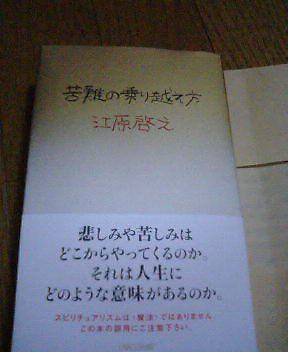 苦難の乗り越え方
江原啓之
悲しみや苦しみは
どこからやってくるのか。
それは人生に
どのような意味があるのか。
スピリチュアリズムは〈魔法〉ではありません。
この本の誤用にご注意下さい。